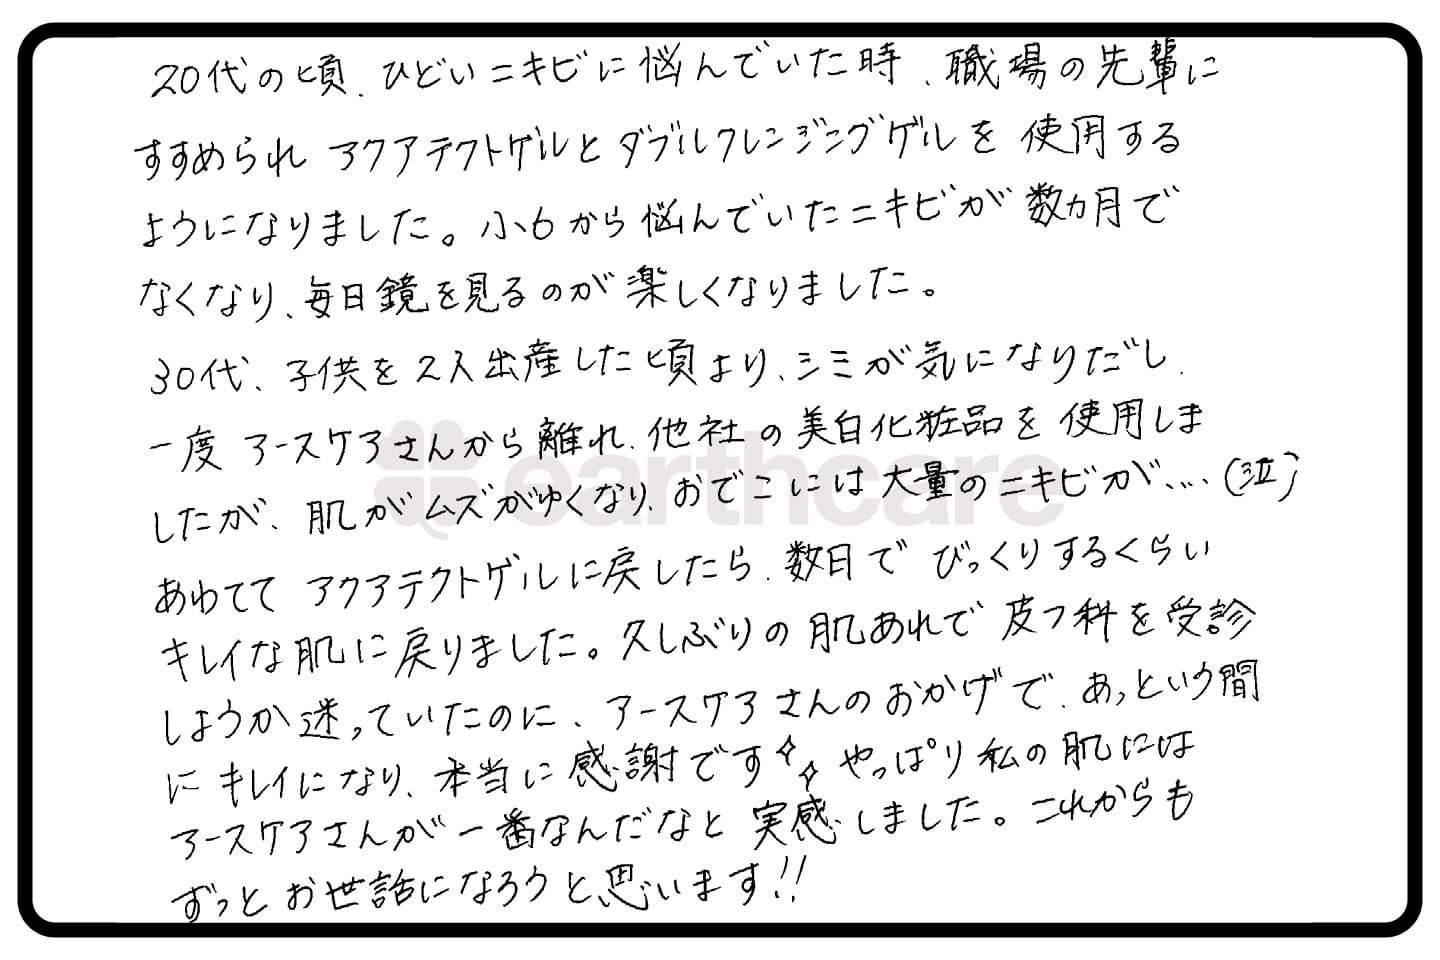 20代の頃、ひどいニキビに悩んでいた時、職場の先輩に
すすめられ アクアテクトゲルとダブルクレンジングゲルを使用する
ようになりました。小6から悩んでいたニキビが数ヵ月で
なくなり、毎日鏡を見るのが楽しくなりました。
30代、子供を2人出産した頃より、シミが気になりだし、
一度アースケアさんから離れ、他社の美白化粧品を使用しま
したが、肌がムズがゆくなり、おでこには大量のニキビが、…(泣)
あわててアクアテクトゲルに戻したら、数日でびっくりするくらい
キレイな肌に戻りました。久しぶりの肌あれで皮フ科を受診
しようか迷っていたのに、アースケアさんのおかげで、あっという間
にキレイになり、本当に感謝です✧✧ やっぱり私の肌には
アースケアさんが一番なんだなと実感しました。これからも
ずっとお世話になろうと思います!!
earthcare